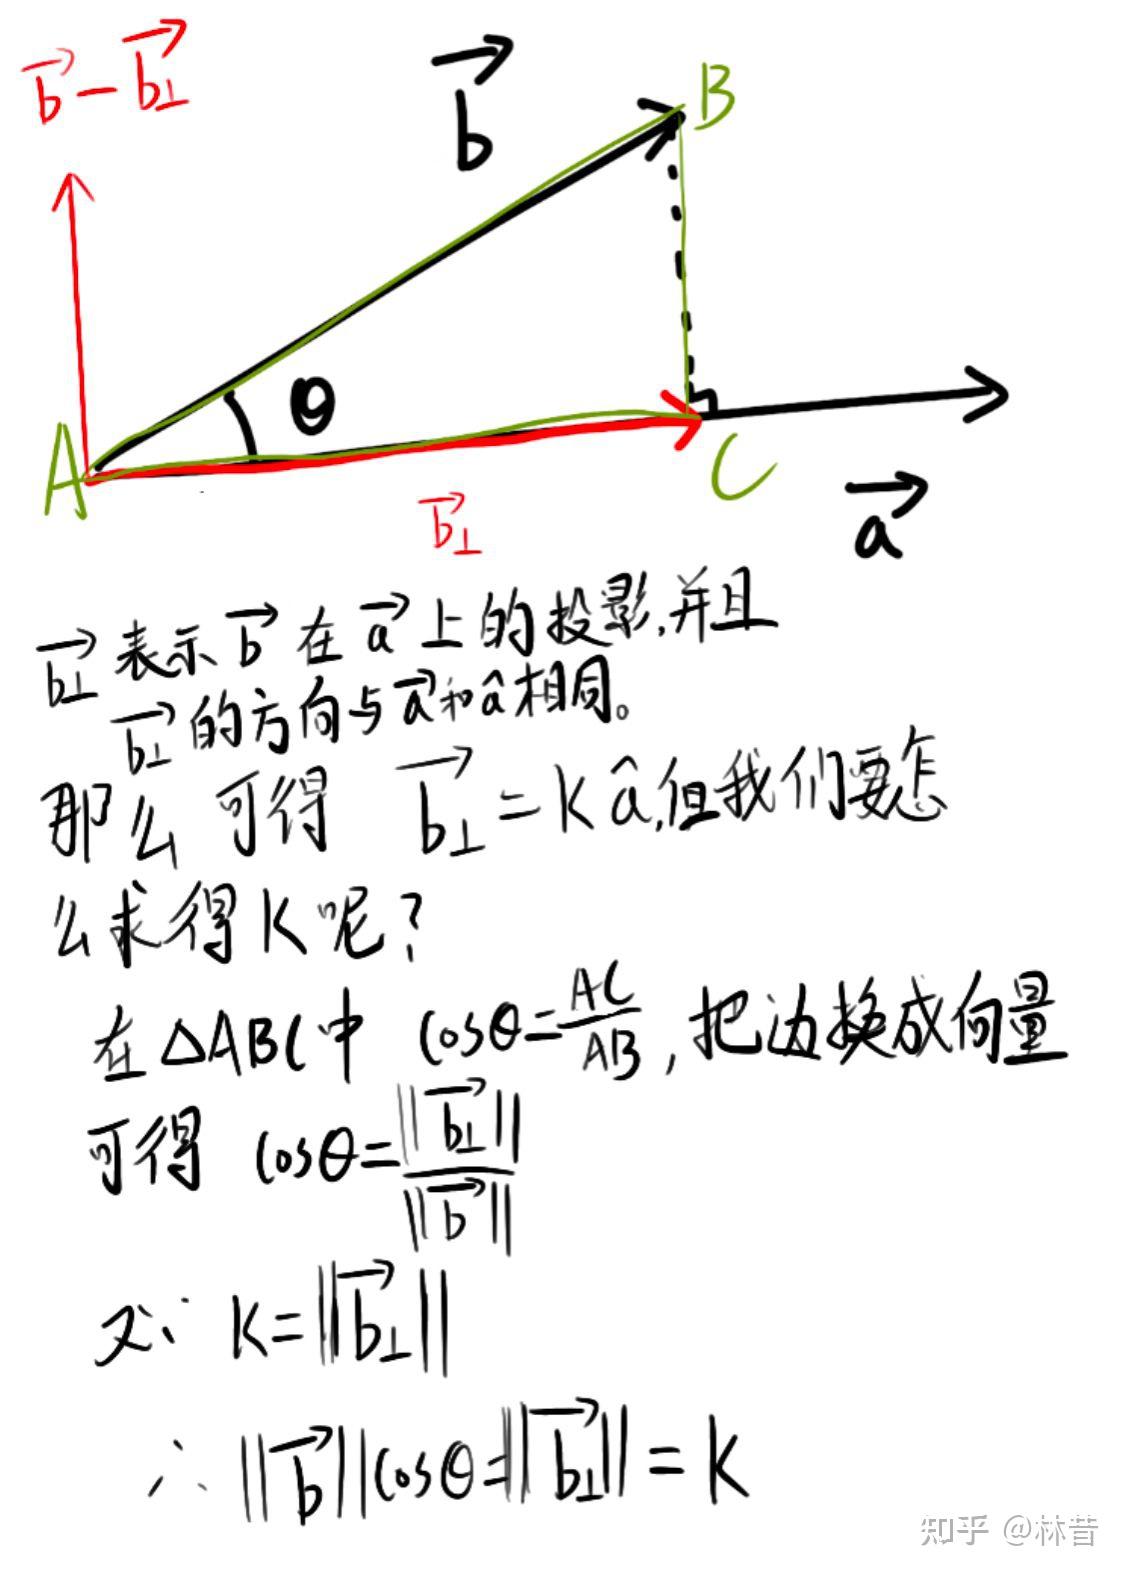 b⃗ − b⃗⊥
b⃗
B
θ
A
C
b⃗⊥
a⃗
b⃗⊥ 表示 b⃗ 在 a⃗ 上的投影,并且
b⃗⊥ 的方向与 a⃗ 和 â 相同。
那么 可得 b⃗⊥ = K â,但我们要怎
么求得 K 呢?
在 △ABC 中 cosθ = AC/AB, 把边换成向量
可得 cosθ = ||b⃗⊥|| / ||b⃗||
又∵ K = ||b⃗⊥||
∴ ||b⃗||cosθ = ||b⃗⊥|| = K
知乎 @林昔